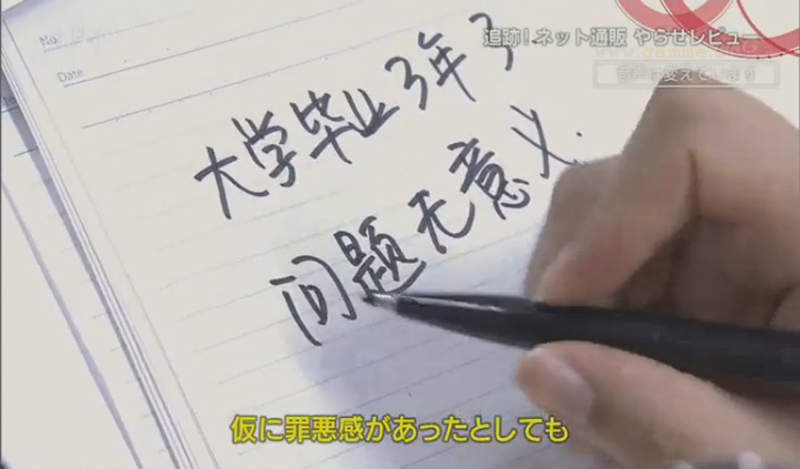 追跡！ネット通販 やらせレビュー
音声は変えています
No.
Date
大学毕业3年3
问题无意义.
仮に罪悪感があったとしても